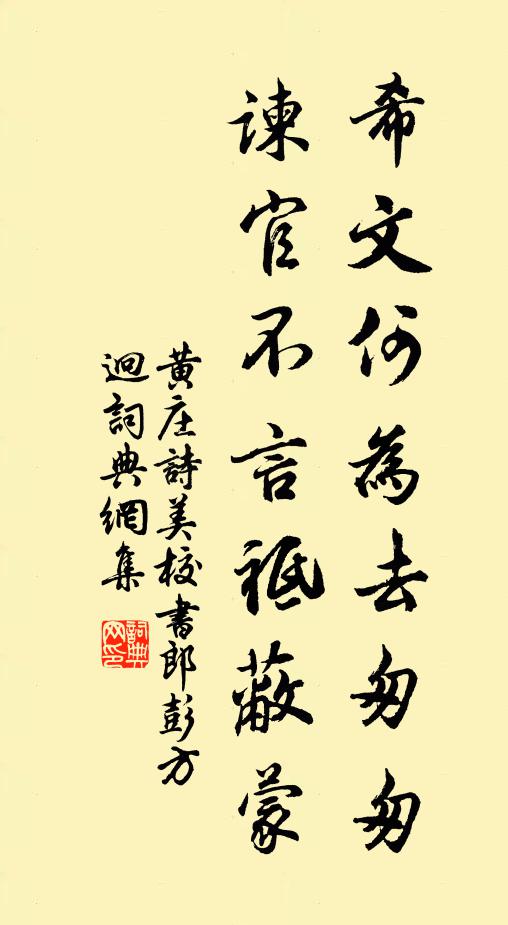 希文何為去匆匆
諫官不言祗蔽蒙
黃庄詩美校書郎彭方
迥詞典網集
詞典網印